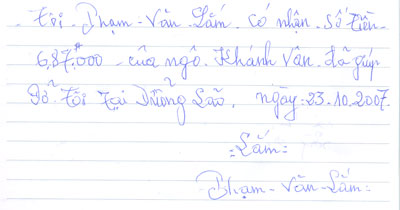 - Tôi - Phạm - Văn Lắm. Có nhận - số tiền -
687.000 - của ngô. Khánh Vân - đã giúp
Đỡ Tôi Tại Dưỡng Lão, ngày: 23.10.2007.
= Lắm =
Phạm - Văn - Lắm =